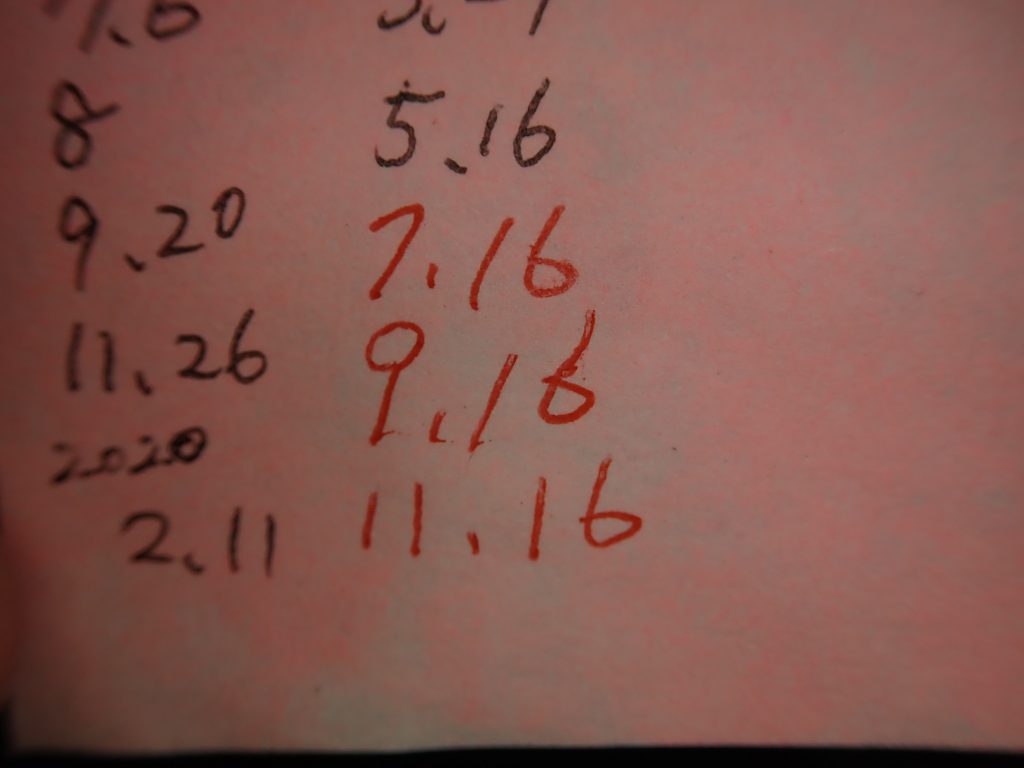 8
9.20
11.26
2020
2.11
5.16
7.16
9.16
11.16